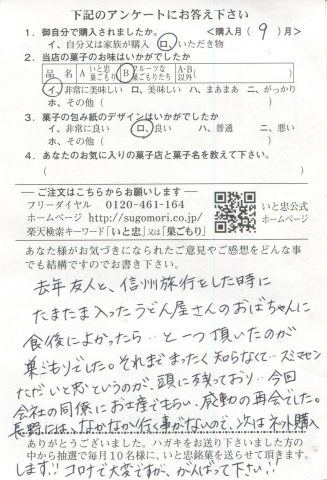 下記のアンケートにお答え下さい
1．御自分で購入されましたか。 <購入月( 9 )月>
イ、自分又は家族が購入 ロ、いただき物
2．当店の菓子のお味はいかがでしたか
品 名 A いと忠巣ごもり B フルーツな巣ごもりたち A・B以外( )
イ、非常に美味しい ロ、美味しい ハ、まあまあ ニ、がっかり
ホ、その他( )
3．菓子の包み紙のデザインはいかがでしたか
イ、非常に良い ロ、良い ハ、普通 ニ、悪い
ホ、その他( )
4．あなたのお気に入りの菓子店と菓子名を教えて下さい。
( )
ご注文はこちらからお願いします
フリーダイヤル 0120-461-164
ホームページ http://sugomori.co.jp/
楽天検索キーワード「いと忠」又は「巣ごもり」
いと忠公式
ホームページ
あなた様がお気づきになられたご意見やご感想をどんな事
でも結構ですのでお書き下さい。
去年友人と、信州旅行をした時に
たまたま入ったうどん屋さんのおばちゃんに
食後によかったら‥と一つ頂いたのが
巣ごもりでした。それまでまったく知らなくて‥スミマセン
ただいと忠というのが、頭に残っており‥今回
会社の同係にお土産でもらい、感動の再会でした。
長野には、なかなか行く事がないので、次はネット購入
ありがとうございました。ハガキをお送り下さいました方の
中から抽選で毎月10名様に、いと忠銘菓を送らせて頂きます。
します!! コロナで大変ですが、がんばって下さい!!